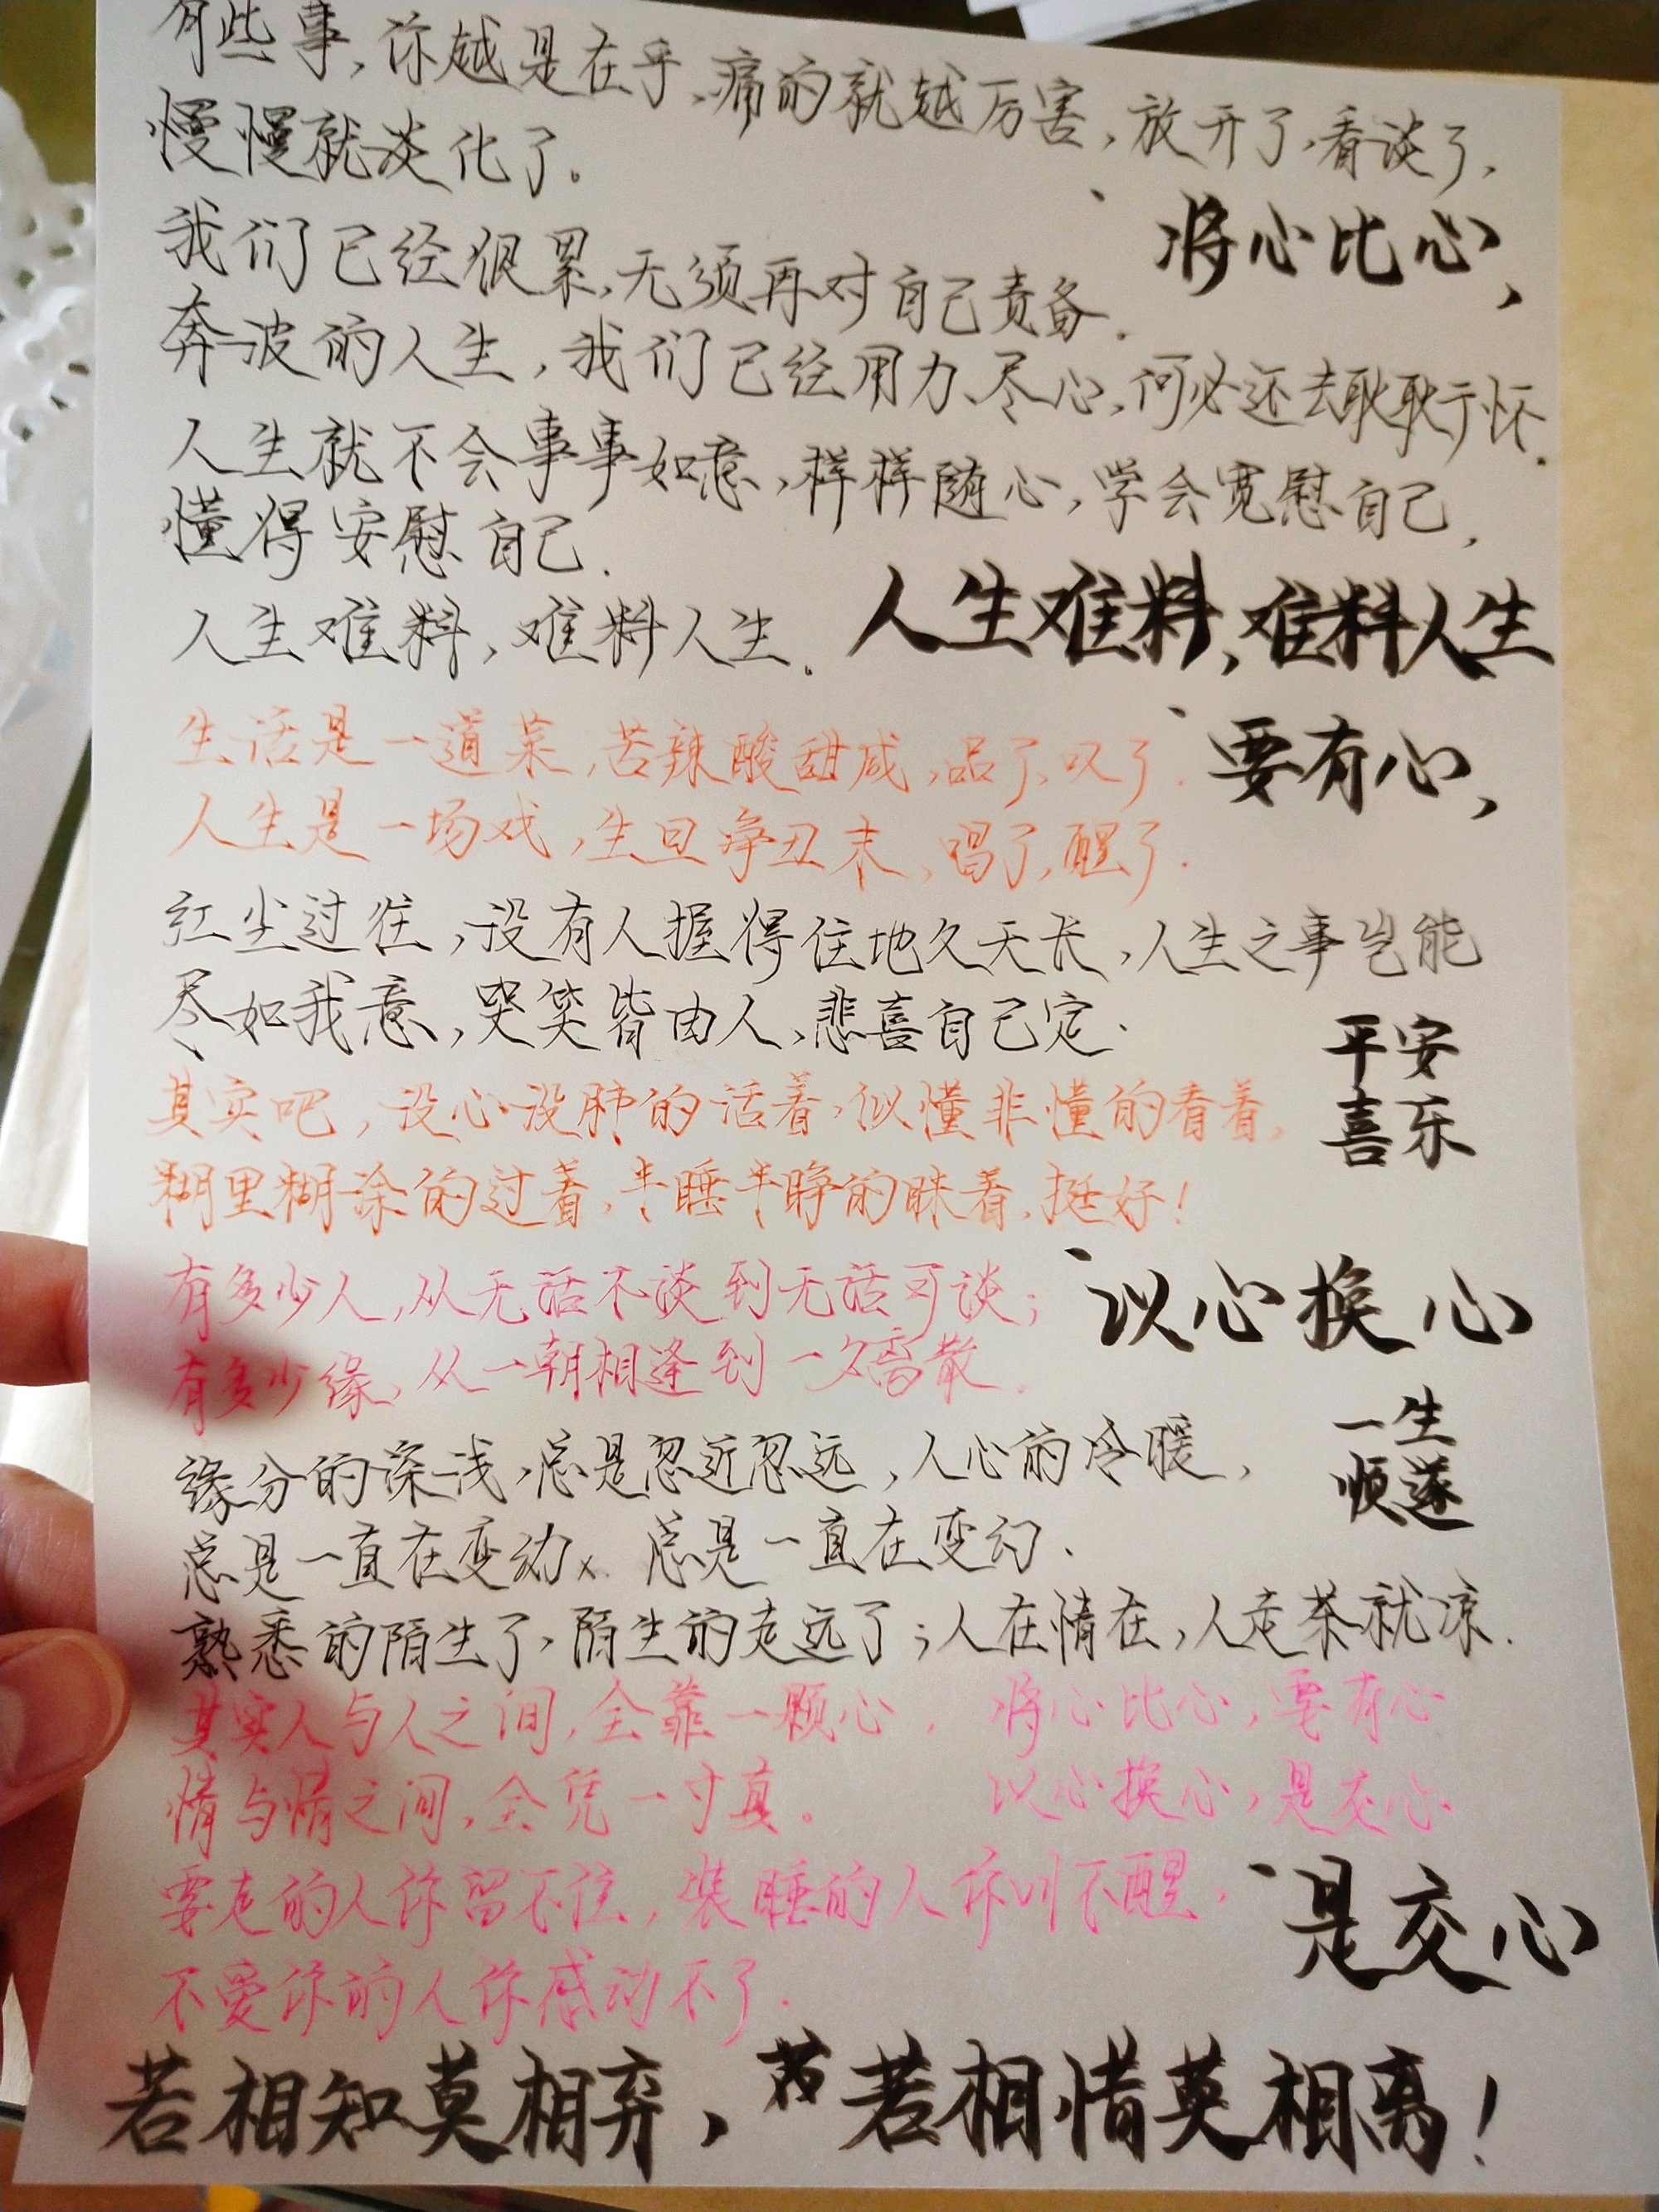 有些事,你越是在乎,痛的就越厉害,放开了,看淡了,
慢慢就淡化了。
将心比心,
我们已经很累,无须再对自己责备.
奔波的人生,我们已经用力、尽心,何必还去耿耿于怀.
人生就不会事事如意,样样随心,学会宽慰自己,
懂得安慰自己.
人生难料,难料人生.
人生难料,难料人生
生活是一道菜,苦辣酸甜咸,品了、叹了.
要有心,
人生是一场戏,生旦净丑末,唱了,醒了.
红尘过往,没有人握得住地久天长,人生之事岂能
尽如我意,哭笑皆由人,悲喜自己定.
平安
喜乐
其实吧,没心没肺的活着,似懂非懂的看着,
糊里糊涂的过着,半睡半睁的眯着,挺好!
有多少人,从无话不谈到无话可谈;
以心换心
有多少缘,从一朝相逢到一夕离散.
缘分的深浅,总是忽近忽远,人心的冷暖,
一生
顺遂
总是一直在变动x.总是一直在变幻.
熟悉的陌生了,陌生的走远了;人在情在,人走茶就凉.
其实人与人之间,全靠一颗心,
将心比心,要有心
情与情之间,全凭一寸真。
以心换心,是交心
要走的人你留不住,装睡的人你叫不醒,
是交心
不爱你的人你感动不了.
若相知莫相弃,若相惜莫相离!